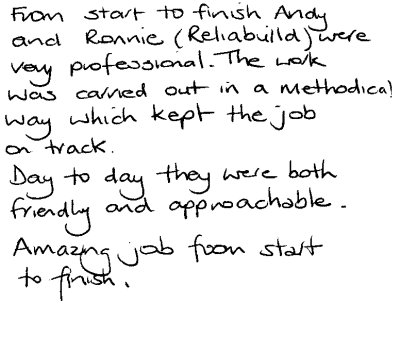 From start to finish Andy
and Ronnie (Reliabuild) were
very professional. The work
was carried out in a methodical
way which kept the job
on track.
Day to day they were both
friendly and approachable.
Amazing job from start
to finish.